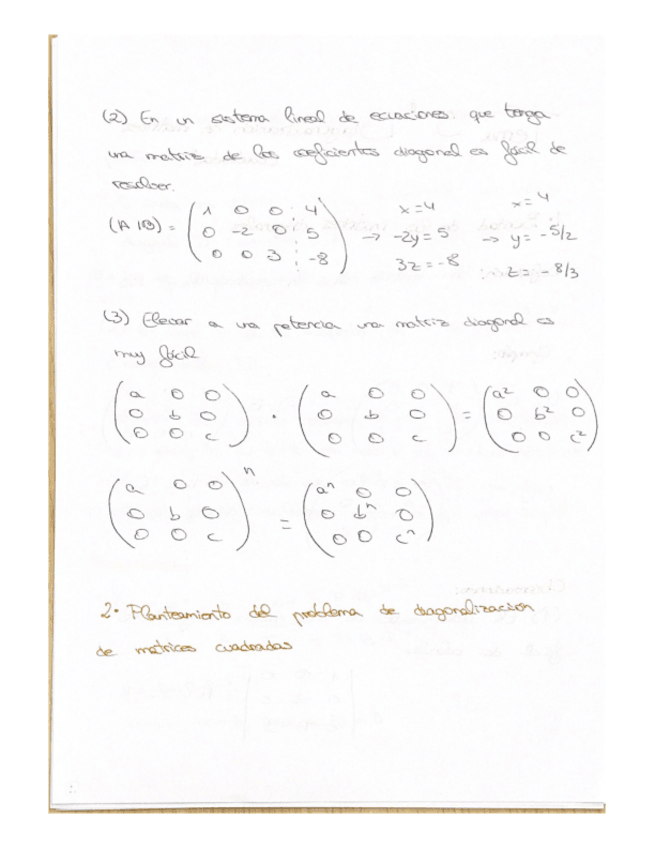 (2) En un sistema lineal de ecuaciones que tenga
una matriz de los coeficientes diagonal es fácil de
resolver.
(A|B) = ( 1 0 0 ¦ 4 ; 0 -2 0 ¦ 5 ; 0 0 3 ¦ -8 ) → x=4 ; -2y=5 ; 3z=-8 → x=4 ; y=-5/2 ; z=-8/3
(3) Elevar a una potencia una matriz diagonal es
muy fácil
( a 0 0 ; 0 b 0 ; 0 0 c ) · ( a 0 0 ; 0 b 0 ; 0 0 c ) = ( a² 0 0 ; 0 b² 0 ; 0 0 c² )
( a 0 0 ; 0 b 0 ; 0 0 c )ⁿ = ( aⁿ 0 0 ; 0 bⁿ 0 ; 0 0 cⁿ )
2. Planteamiento del problema de diagonalizacion
de matrices cuadradas